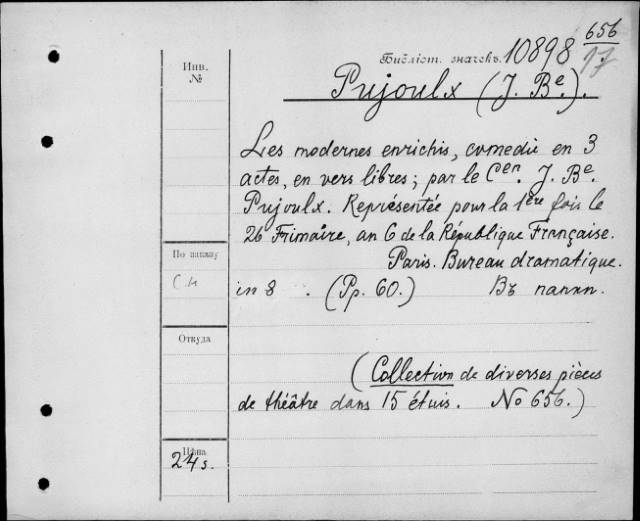 656
Библіот. значекъ. 10898 17
Инв.
№
Pujoulx (J. Bᵉ.).
Les modernes enrichis, comedie en 3
actes, en vers libres; par le Cᵉⁿ. J. Bᵉ.
Pujoulx. Représentée pour la 1ère fois le
26 Frimaire, an 6 de la République Française.
Paris. Bureau dramatique.
По заказу
in 8. (Pp. 60.) Въ папкѣ.
Откуда
(Collection de diverses pièces
de théâtre dans 15 étuis. No 656.)
Цѣна
24 s.